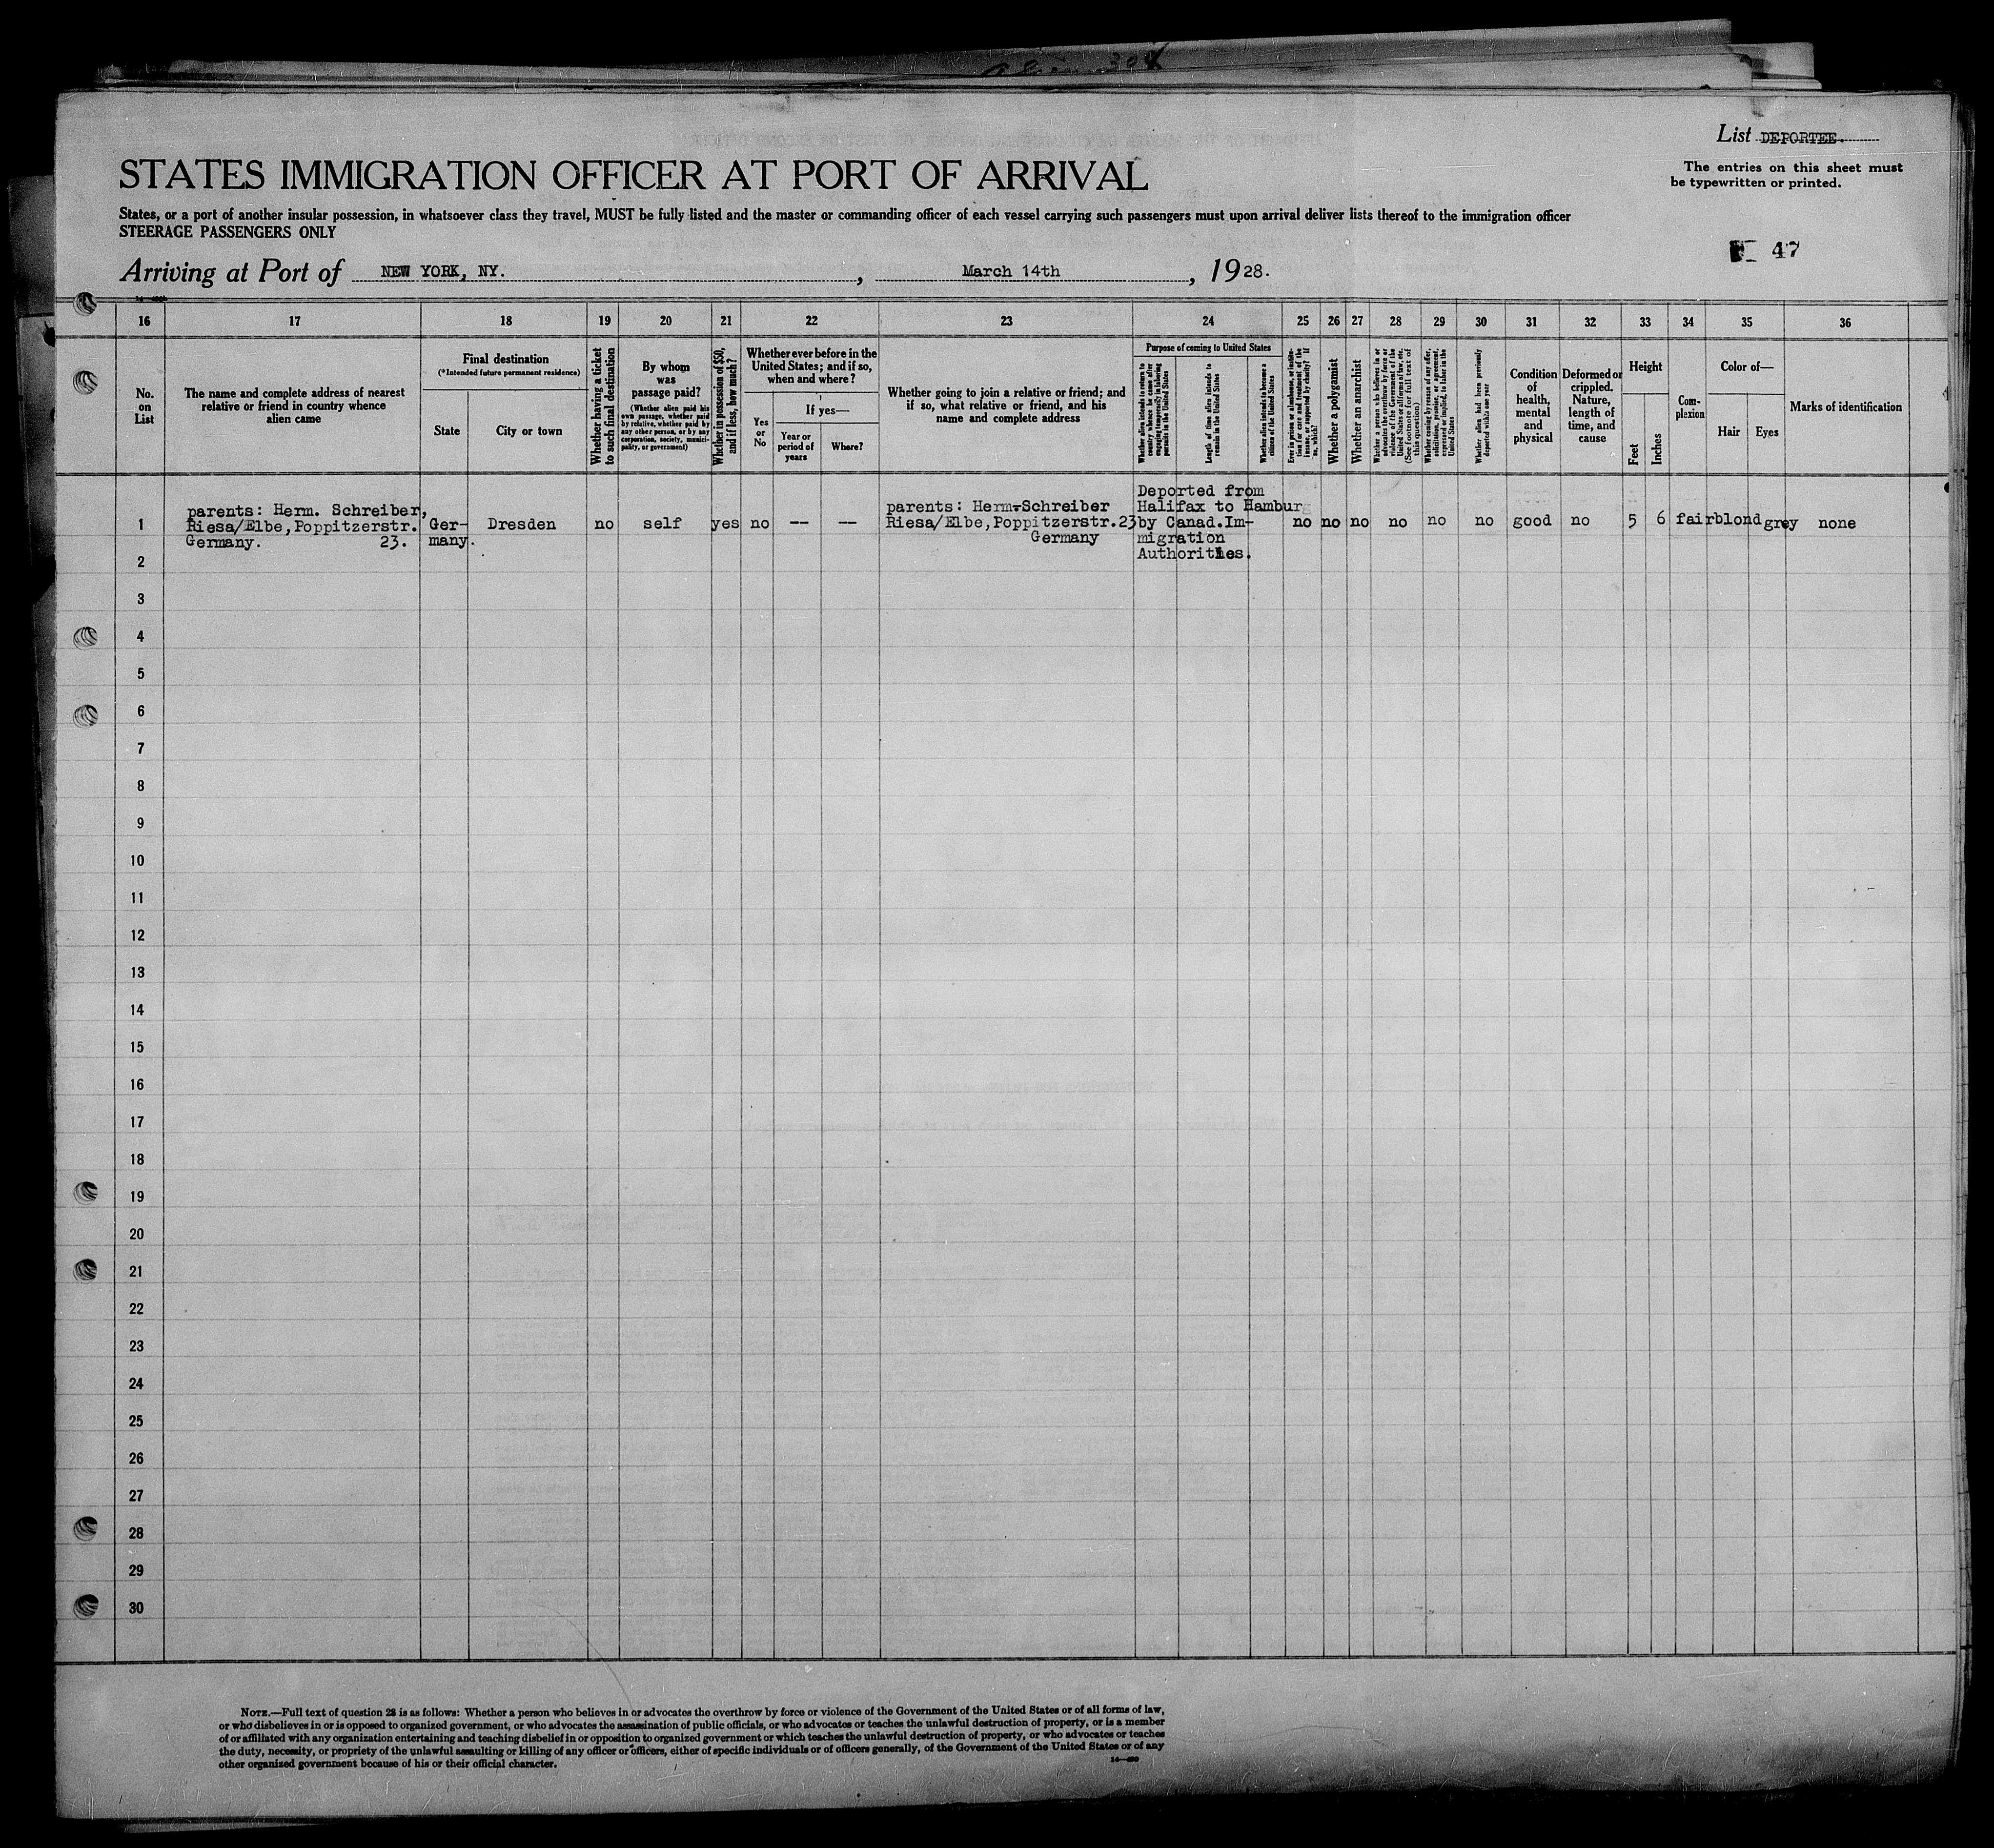 List DEPORTEE.
STATES IMMIGRATION OFFICER AT PORT OF ARRIVAL
The entries on this sheet must
be typewritten or printed.
States, or a port of another insular possession, in whatsoever class they travel, MUST be fully listed and the master or commanding officer of each vessel carrying such passengers must upon arrival deliver lists thereof to the immigration officer
STEERAGE PASSENGERS ONLY
47
Arriving at Port of NEW YORK, NY. , March 14th , 1928.
16 17 18 19 20 21 22 23 24 25 26 27 28 29 30 31 32 33 34 35 36
No.
on
List
The name and complete address of nearest
relative or friend in country whence
alien came
Final destination
(*Intended future permanent residence)
State
City or town
Whether having a ticket
to such final destination
By whom
was
passage paid?
(Whether alien paid his
own passage, whether paid
by relative, whether paid by
any other person, or by any
corporation, society, munici-
pality, or government)
Whether in possession of $50,
and if less, how much?
Whether ever before in the
United States; and if so,
when and where?
Yes
or
No
If yes—
Year or
period of
years
Where?
Whether going to join a relative or friend; and
if so, what relative or friend, and his
name and complete address
Purpose of coming to United States
Whether alien intends to return to
country whence he came after
engaging temporarily in laboring
pursuits in the United States
Length of time alien intends to
remain in the United States
Whether alien intends to become a
citizen of the United States
Ever in prison or almshouse, or institu-
tion for care and treatment of the
insane, or supported by charity? If
so, which?
Whether a polygamist
Whether an anarchist
Whether a person who believes in or
advocates the overthrow by force or
violence of the Government of the
United States or all forms of law, etc.
(See footnote for full text of
this question)
Whether coming by reason of any offer,
solicitation, promise, or agreement,
expressed or implied, to labor in the
United States
Whether alien had been previously
deported within one year
Condition
of
health,
mental
and
physical
Deformed or
crippled.
Nature,
length of
time, and
cause
Height
Feet
Inches
Com-
plexion
Color of—
Hair
Eyes
Marks of identification
1
parents: Herm. Schreiber,
Riesa/Elbe,Poppitzerstr.
Germany. 23.
Ger-
many.
Dresden
no
self
yes
no
--
--
parents: Herm.Schreiber
Riesa/Elbe,Poppitzerstr.23
Germany
Deported from
Halifax to Hamburg
by Canad.Im-
migration
Authorities.
no no no no no no good no 5 6 fair blond grey none
2
3
4
5
6
7
8
9
10
11
12
13
14
15
16
17
18
19
20
21
22
23
24
25
26
27
28
29
30
NOTE.—Full text of question 28 is as follows: Whether a person who believes in or advocates the overthrow by force or violence of the Government of the United States or of all forms of law,
or who disbelieves in or is opposed to organized government, or who advocates the assassination of public officials, or who advocates or teaches the unlawful destruction of property, or is a member
of or affiliated with any organization entertaining and teaching disbelief in or opposition to organized government or which teaches the unlawful destruction of property, or who advocates or teaches
the duty, necessity, or propriety of the unlawful assaulting or killing of any officer or officers, either of specific individuals or of officers generally, of the Government of the United States or of any
other organized government because of his or their official character.